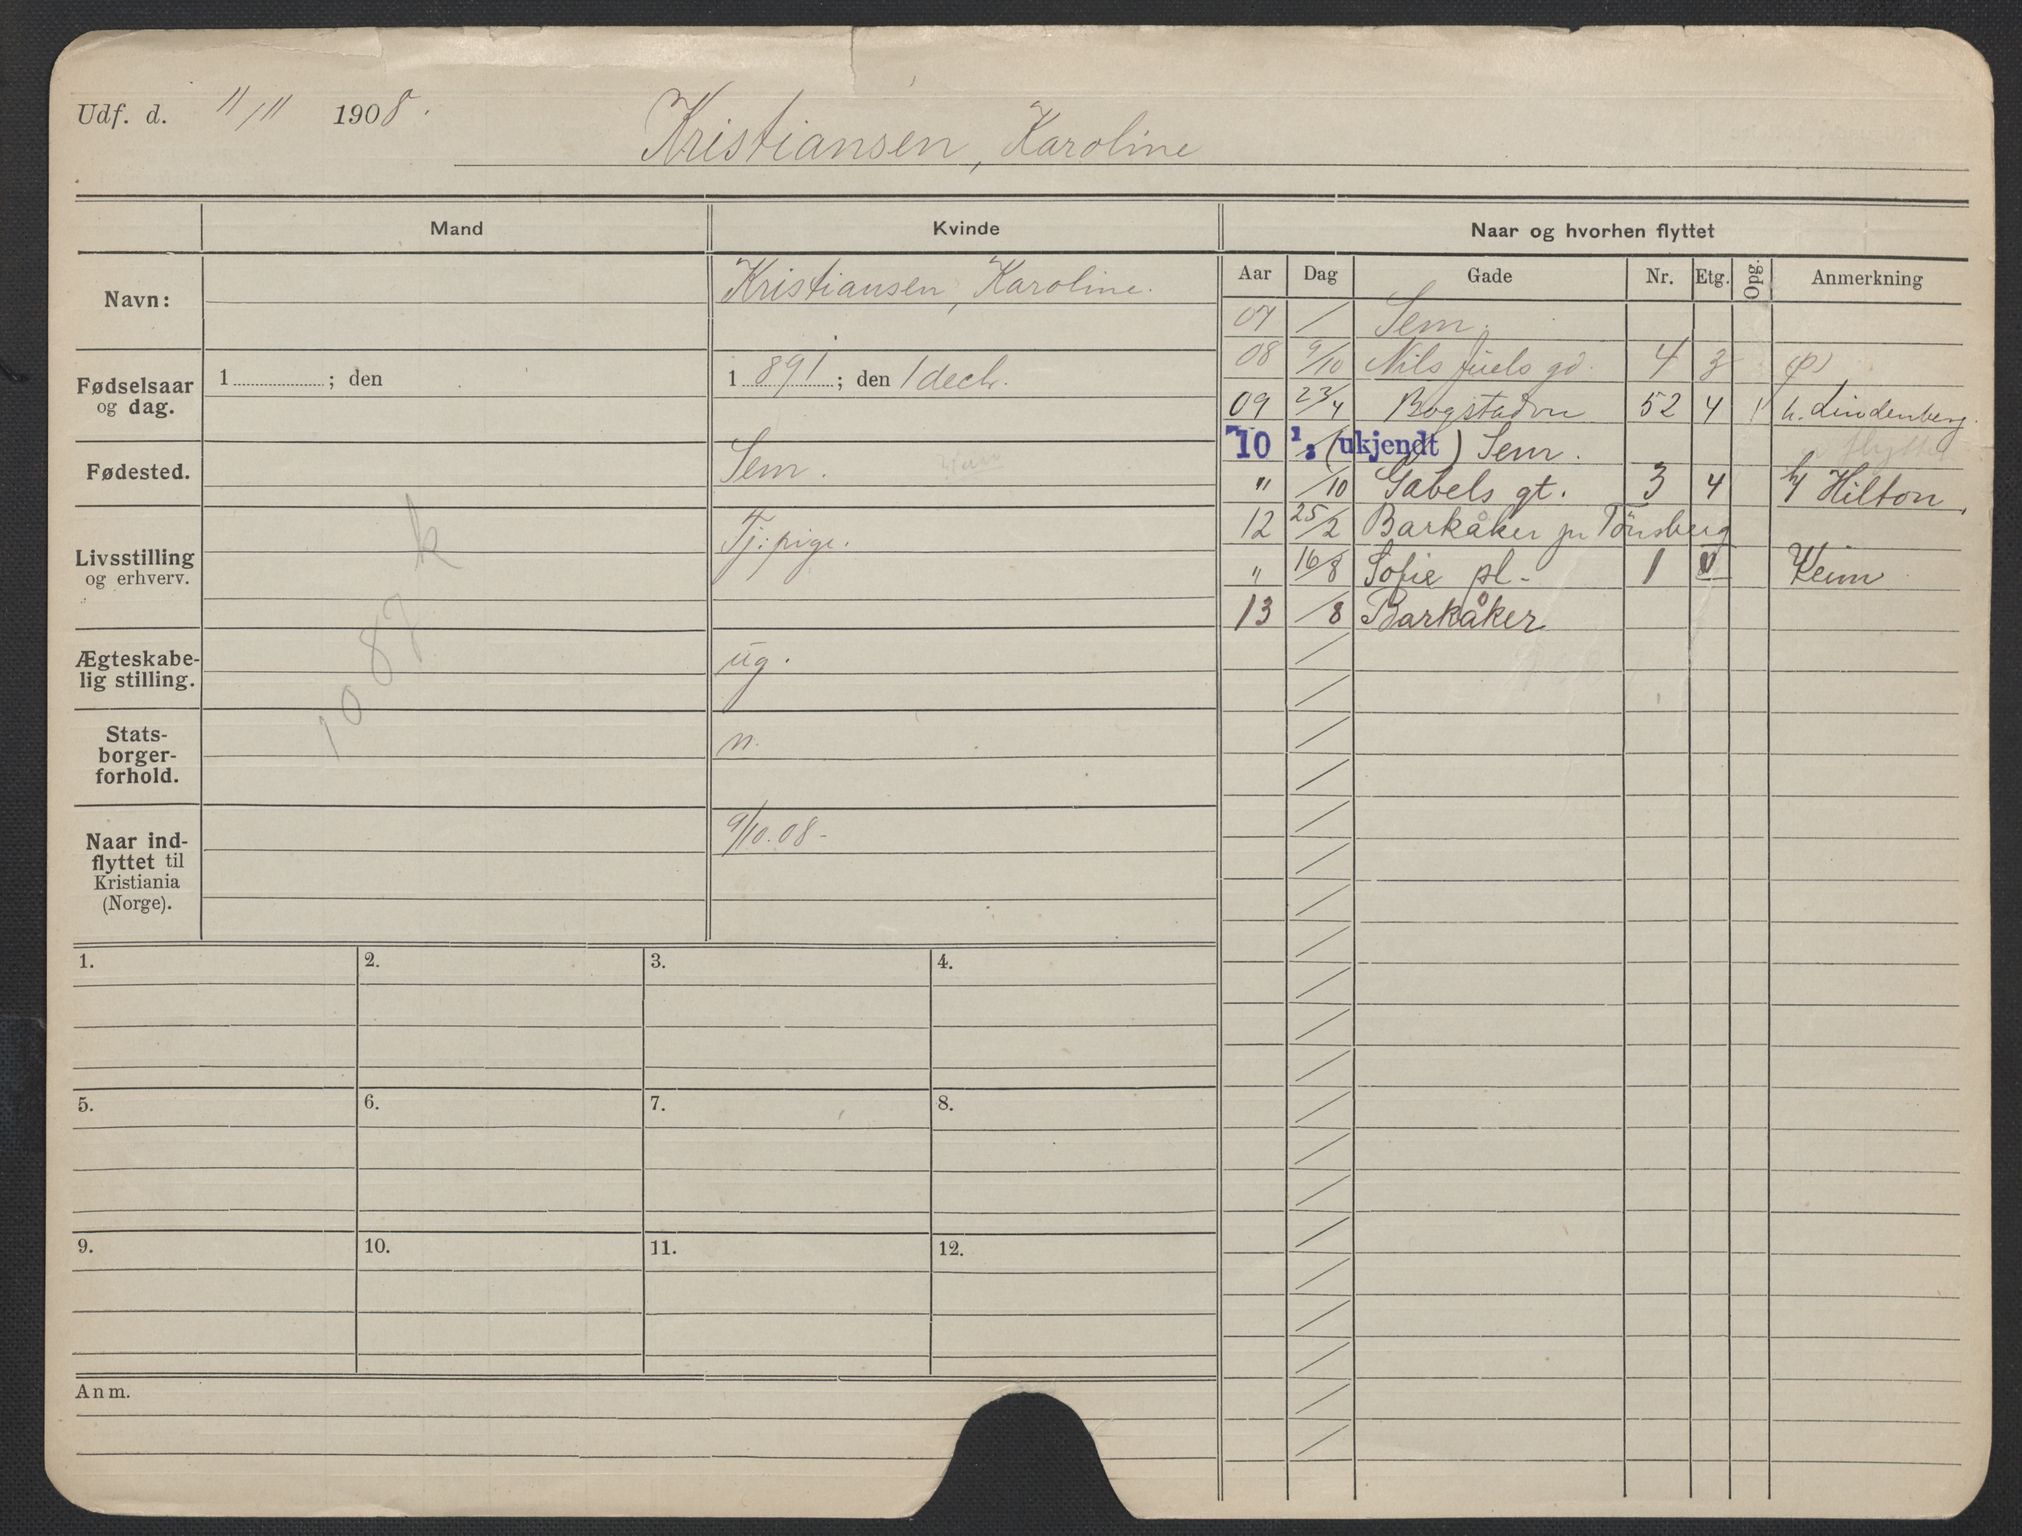 Udf. d. 11/11 1908.
Kristiansen, Karoline
Mand
Kvinde
Naar og hvorhen flyttet
Navn:
Kristiansen, Karoline.
Fødselsaar og dag.
1 ; den
1 891 ; den 1 decbr.
Fødested.
Sem.
Livsstilling og erhverv.
Tj: pige.
k
1087
Ægteskabe-
lig stilling.
ug.
Stats-
borger-
forhold.
n.
Naar ind-
flyttet til
Kristiania
(Norge).
9/10.08-
Aar Dag Gade Nr. Etg. Opg. Anmerkning
07 / Sem.
08 9/10 Nils Juels gd. 4 3 (p)
09 23/4 Bogstadvn 52 4 1 h. Lindenberg.
flyttet
10 1: (ukjendt) Sem.
" /10 Gabels gt. 3 4 h/ Hilton,
12 25/2 Barkåker pr Tönsberg
" 16/8 Sofie pl- 1 V Keim
13 /8 Barkåker
1. 2. 3. 4.
5. 6. 7. 8.
9. 10. 11. 12.
Anm.